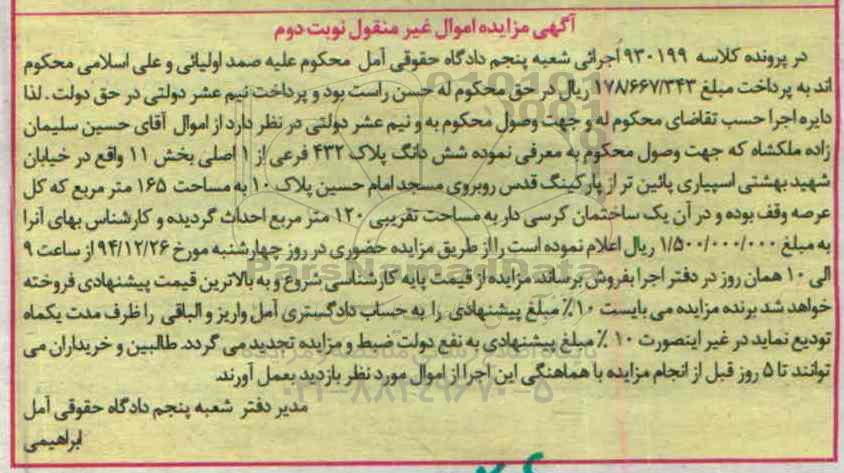 آگهی مزایده اموال غیر منقول نوبت دوم
در پرونده کلاسه ۹۳۰۱۹۹ اجرائی شعبه پنجم دادگاه حقوقی آمل محکوم علیه صمد اولیائی و علی اسلامی محکوم
اند به پرداخت مبلغ ۱۷۸/۶۶۷/۳۴۳ ریال در حق محکوم له حسن راست بود و پرداخت نیم عشر دولتی در حق دولت . لذا
دایره اجرا حسب تقاضای محکوم له و جهت وصول محکوم به و نیم عشر دولتی در نظر دارد از اموال آقای حسین سلیمان
زاده ملکشاه که جهت وصول محکوم به معرفی نموده شش دانگ پلاک ۴۳۲ فرعی از ۱ اصلی بخش ۱۱ واقع در خیابان
شهید بهشتی اسپیاری پائین تر از پارکینگ قدس روبروی مسجد امام حسین پلاک ۱۰ به مساحت ۱۶۵ متر مربع که کل
عرصه وقف بوده و در آن یک ساختمان کرسی دار به مساحت تقریبی ۱۲۰ متر مربع احداث گردیده و کارشناس بهای آنرا
به مبلغ ۱/۵۰۰/۰۰۰/۰۰۰ ریال اعلام نموده است را از طریق مزایده حضوری در روز چهارشنبه مورخ ۹۴/۱۲/۲۶ از ساعت ۹
الی ۱۰ همان روز در دفتر اجرا بفروش برساند. مزایده از قیمت پایه کارشناسی شروع و به بالاترین قیمت پیشنهادی فروخته
خواهد شد برنده مزایده می بایست ۱۰٪ مبلغ پیشنهادی را به حساب دادگستری آمل واریز و الباقی را ظرف مدت یکماه
تودیع نماید در غیر اینصورت ۱۰ ٪ مبلغ پیشنهادی به نفع دولت ضبط و مزایده تجدید می گردد. طالبین و خریداران می
توانند تا ۵ روز قبل از انجام مزایده با هماهنگی این اجرا از اموال مورد نظر بازدید بعمل آورند.
مدیر دفتر شعبه پنجم دادگاه حقوقی آمل
ابراهیمی
ParsNamadData
۰۲۱-۸۸۳۴۹۶۷۰-۵